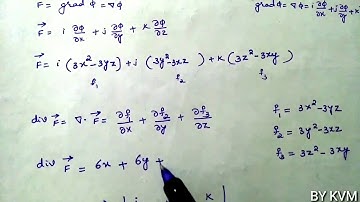 F = grad φ = ∇φ
grad φ = ∇φ = i ∂φ/∂x + j ∂φ/∂y + k
F⃗ = i ∂φ/∂x + j ∂φ/∂y + k ∂φ/∂z
F⃗ = i (3x²-3yz) + j (3y²-3xz) + k (3z²-3xy)
f₁ f₂ f₃
div F⃗ = ∇·F⃗ = ∂f₁/∂x + ∂f₂/∂y + ∂f₃/∂z
f₁ = 3x²-3yz
f₂ = 3y²-3xz
f₃ = 3z²-3xy
div F⃗ = 6x + 6y +
BY KVM